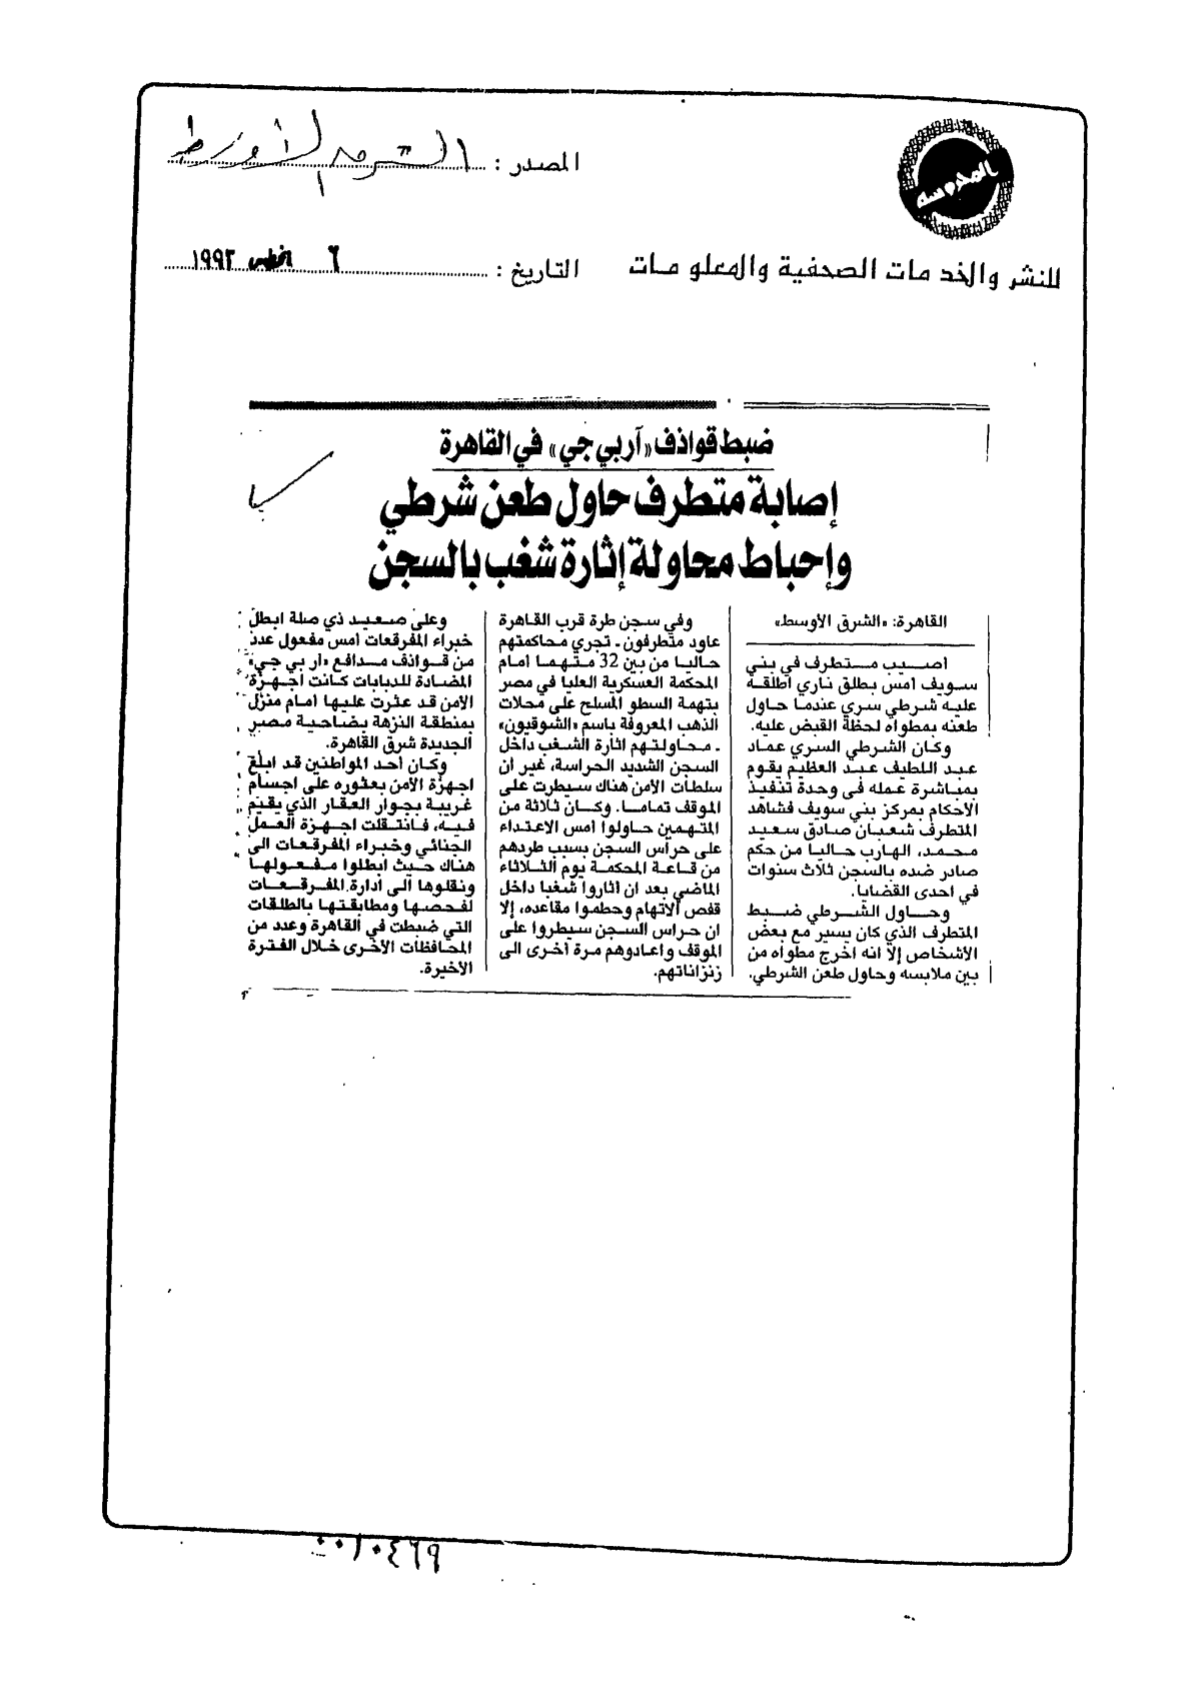 المدرسة
للنشر والخدمات الصحفية والمعلومات
المصدر : الشرق الأوسط
التاريخ : ٦ اغسطس ١٩٩٢
ضبط قواذف «آر بي جي» في القاهرة
إصابة متطرف حاول طعن شرطي
وإحباط محاولة إثارة شغب بالسجن
القاهرة: «الشرق الأوسط»
اصيب متطرف في بني
سويف امس بطلق ناري اطلقه
عليه شرطي سري عندما حاول
طعنه بمطواه لحظة القبض عليه.
وكان الشرطي السري عماد
عبد اللطيف عبد العظيم يقوم
بمباشرة عمله في وحدة تنفيذ
الأحكام بمركز بني سويف فشاهد
المتطرف شعبان صادق سعيد
محمد، الهارب حاليا من حكم
صادر ضده بالسجن ثلاث سنوات
في احدى القضايا.
وحاول الشرطي ضبط
المتطرف الذي كان يسير مع بعض
الأشخاص إلا انه اخرج مطواه من
بين ملابسه وحاول طعن الشرطي.
وفي سجن طرة قرب القاهرة
عاود متطرفون ـ تجري محاكمتهم
حاليا من بين 32 متهما امام
المحكمة العسكرية العليا في مصر
بتهمة السطو المسلح على محلات
الذهب المعروفة باسم «الشوقيون»
ـ محاولتهم اثارة الشغب داخل
السجن الشديد الحراسة، غير ان
سلطات الأمن هناك سيطرت على
الموقف تماما. وكان ثلاثة من
المتهمين حاولوا امس الاعتداء
على حراس السجن بسبب طردهم
من قاعة المحكمة يوم الثلاثاء
الماضي بعد ان اثاروا شغبا داخل
قفص الاتهام وحطموا مقاعده، إلا
ان حراس السجن سيطروا على
الموقف واعادوهم مرة أخرى الى
زنزاناتهم.
وعلى صعيد ذي صلة ابطل
خبراء المفرقعات امس مفعول عدد
من قواذف مدافع «ار بي جي»
المضادة للدبابات كانت اجهزة
الأمن قد عثرت عليها امام منزل
بمنطقة النزهة بضاحية مصر
الجديدة شرق القاهرة.
وكان أحد المواطنين قد ابلغ
اجهزة الأمن بعثوره على اجسام
غريبة بجوار العقار الذي يقيم
فيه، فانتقلت اجهزة العمل
الجنائي وخبراء المفرقعات الى
هناك حيث ابطلوا مفعولها
ونقلوها الى أدارة المفرقعات
لفحصها ومطابقتها بالطلقات
التي ضبطت في القاهرة وعدد من
المحافظات الأخرى خلال الفترة
الأخيرة.
٠٠١٠٤٦٩